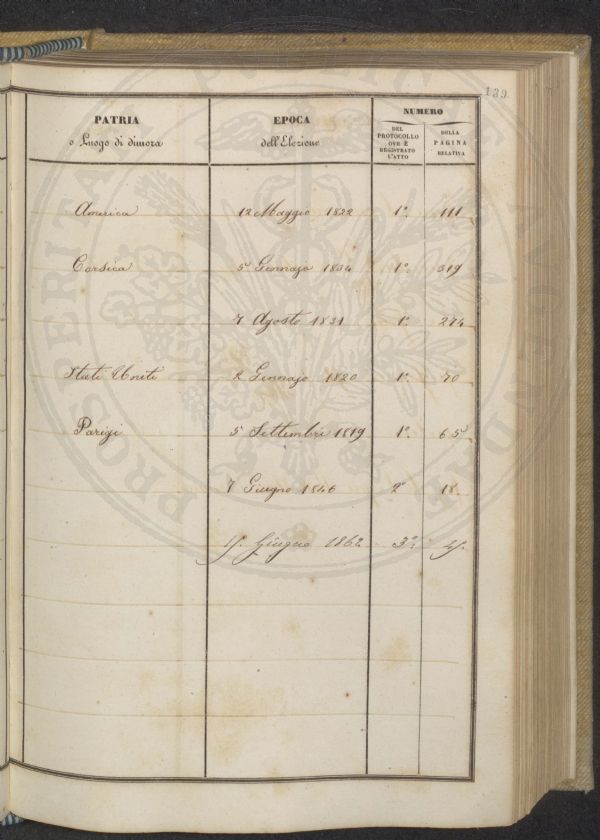 189
PATRIA
o Luogo di dimora
EPOCA
dell'Elezione
NUMERO
DEL
PROTOCOLLO
OVE È
REGISTRATO
L'ATTO
DELLA
PAGINA
RELATIVA
America 12 Maggio 1822 1º. 111
Corsica 5 Gennajo 1834 1º. 319
7 Agosto 1831 1º. 274
Stati Uniti 2 Gennajo 1820 1º. 70
Parigi 5 Settembre 1819 1º. 65
7 Giugno 1846 2º 18
Giugno 1862 3º.
PROSPERITATI PUBLICAE AUGENDAE